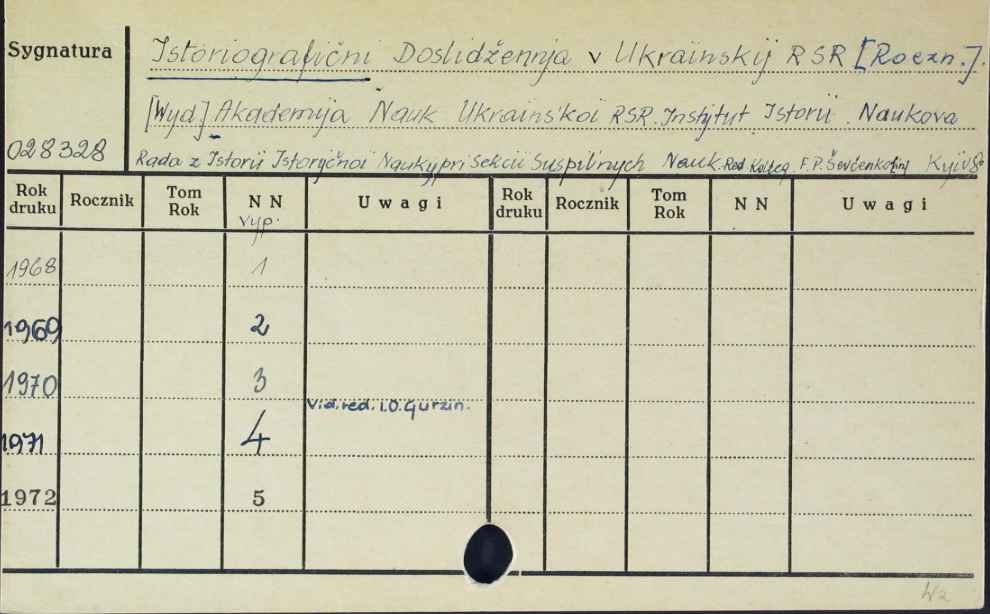 Sygnatura
Istoriografični Doslidžennja v Ukrainskij RSR [Roczn.].
[Wyd] Akademija Nauk Ukrains'koi RSR. Instytut Istorii. Naukova
028328
Rada z Istorii Istoryčnoi Nauky pri Sekcii Suspil'nych Nauk. Red. F.P. Ševčenko Kyiv
Rok druku Rocznik Tom Rok NN Uwagi Rok druku Rocznik Tom Rok NN Uwagi
Vyp.
1968 1
1969 2
1970 3
Vid. red. I.O. Gurzin.
1971 4
1972 5